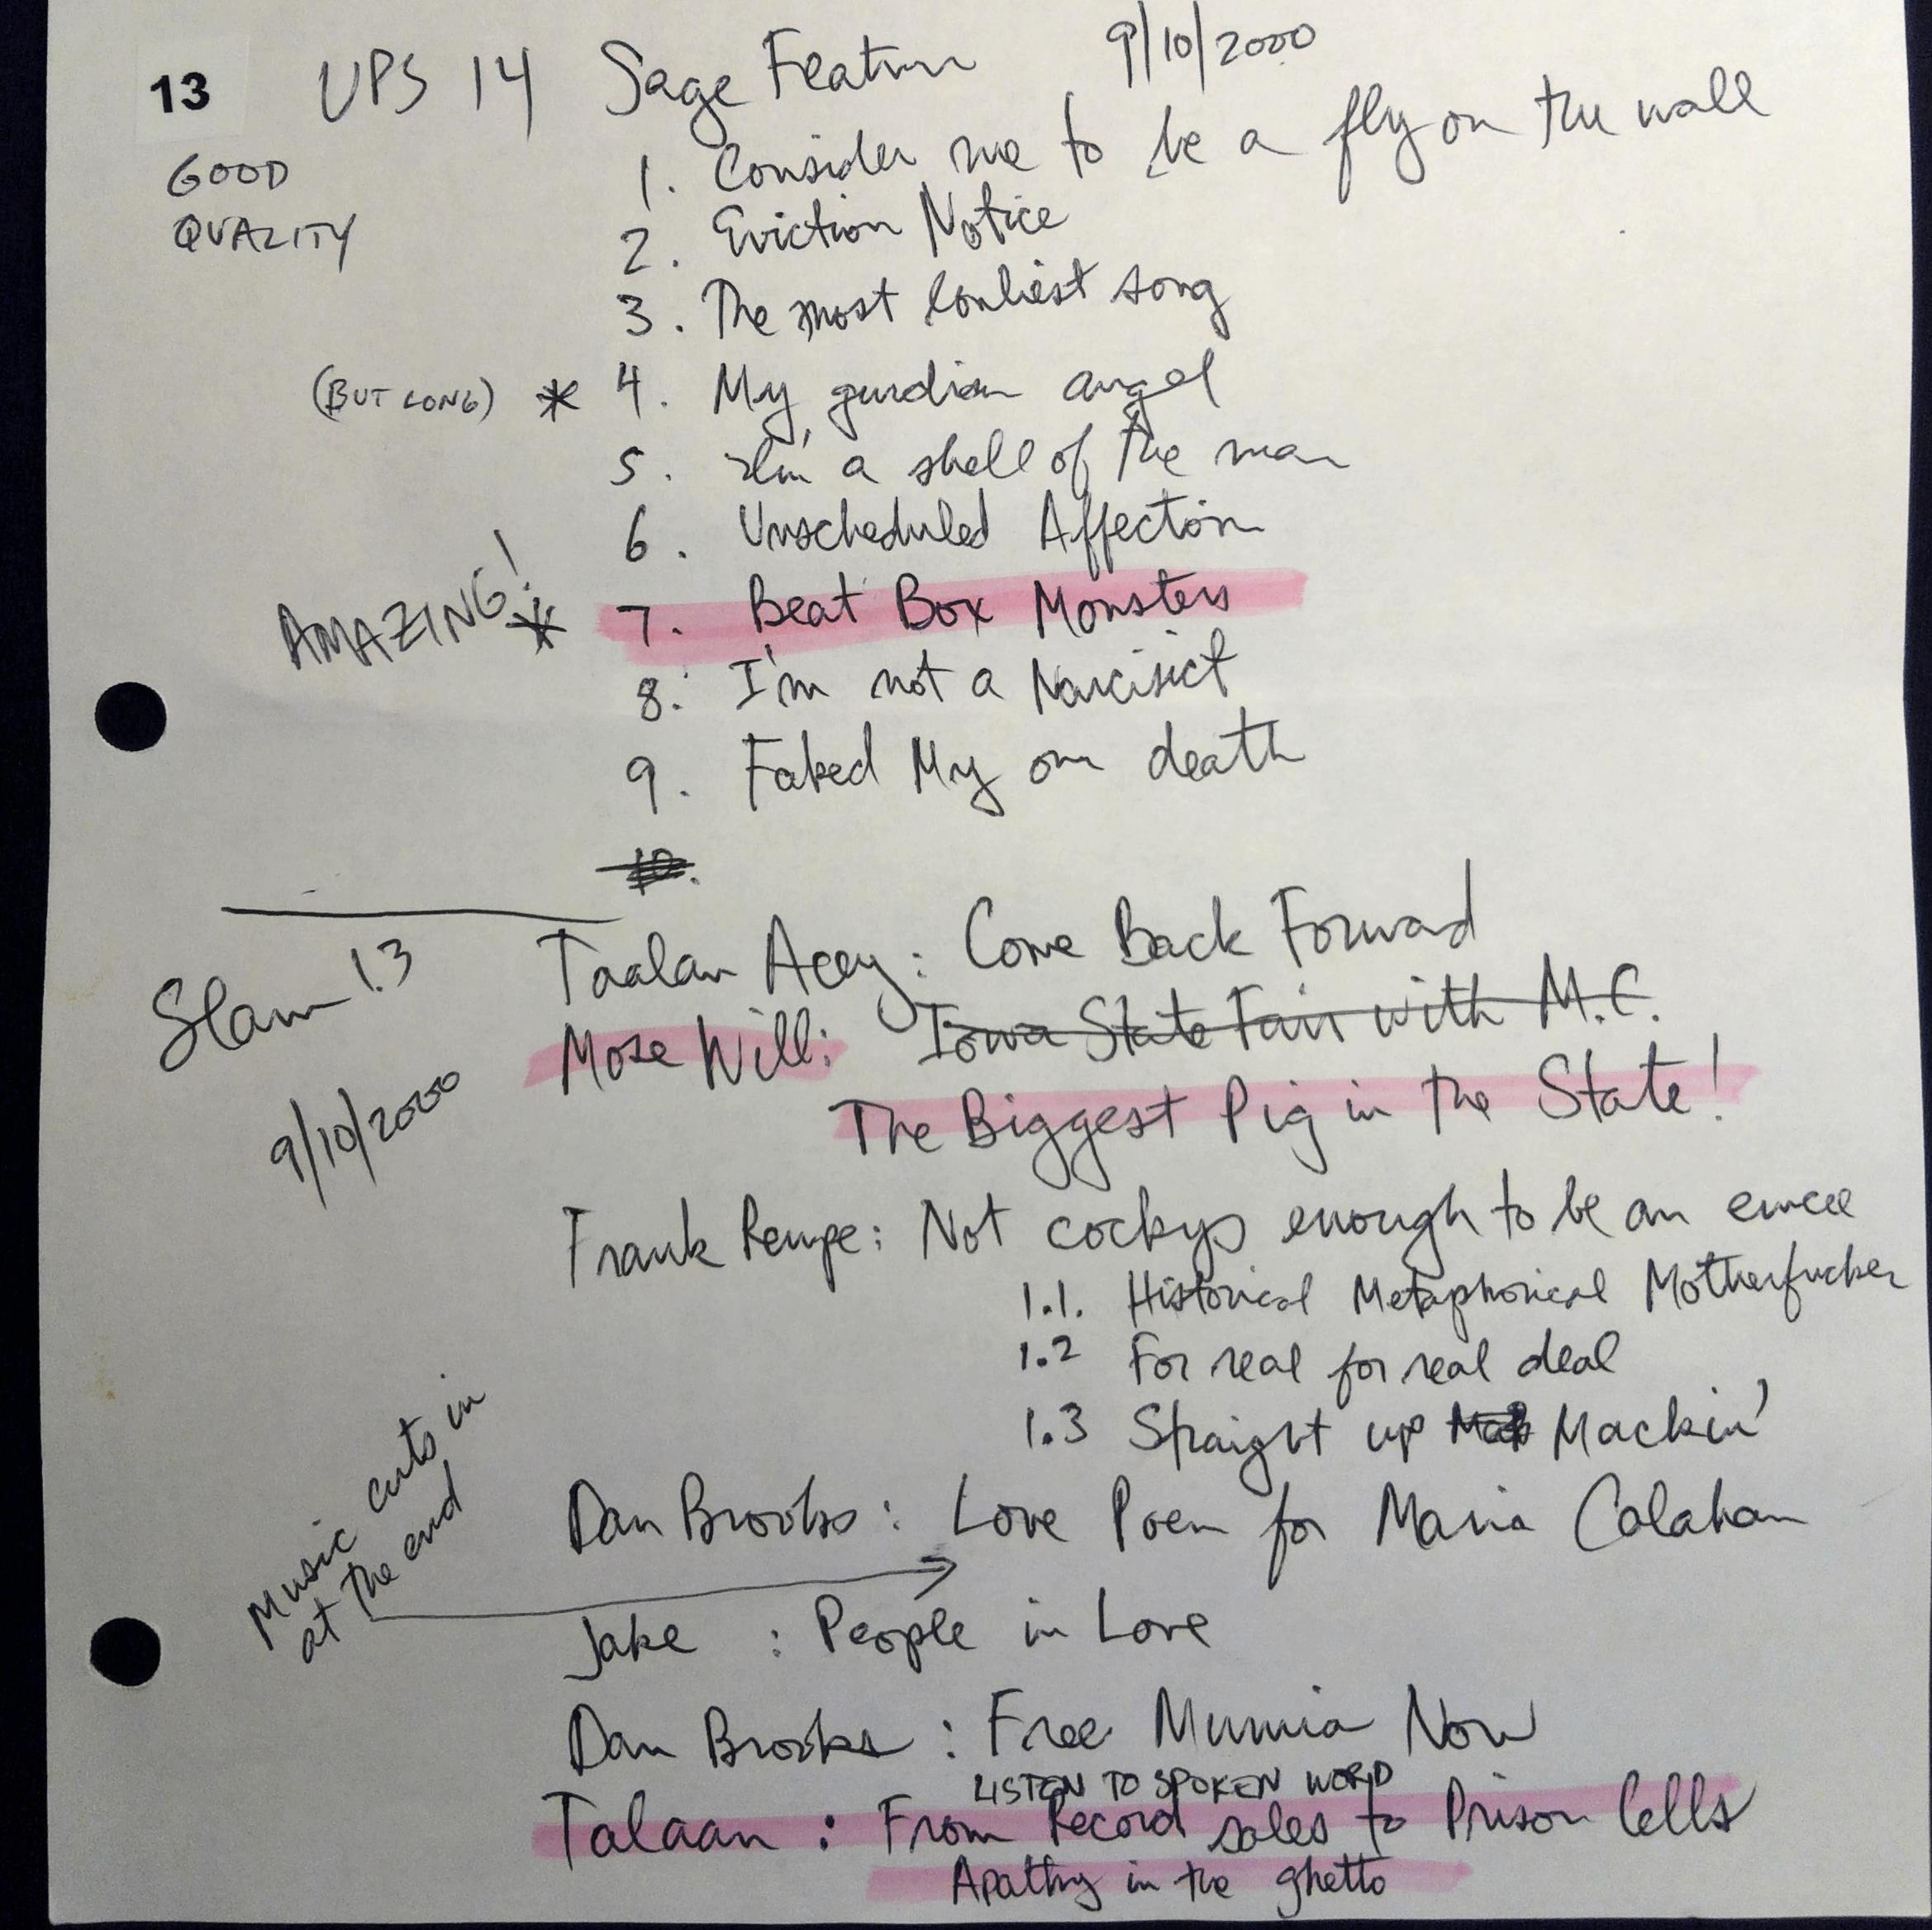 13 UPS 14 Sage Feature 9/10/2000
GOOD
QUALITY
1. Consider me to be a fly on the wall
2. Eviction Notice
3. The most lonliest song
(BUT LONG) * 4. My gurdian angel
5. I'm a shell of the man
6. Unscheduled Affection
AMAZING! * 7. Beat Box Monsters
8. I'm not a Narcisict
9. Faked My own death
10.
Slam 13
9/10/2000
Taalan Acey: Come Back Forward
Mose Will: Iowa State Fair with M.C.
The Biggest Pig in the State!
Frank Rempe: Not cockys enough to be an emcee
1.1. Historical Metaphorical Motherfucker
1.2 For real for real deal
1.3 Straight up Mackin'
Dan Brooks: Love Poem for Maria Calahan
Music cuts in
at the end
Jake : People in Love
Dan Brooks : Free Mumia Now
LISTEN TO SPOKEN WORD
Talaan : From Record sales to Prison Cells
Apathy in the ghetto